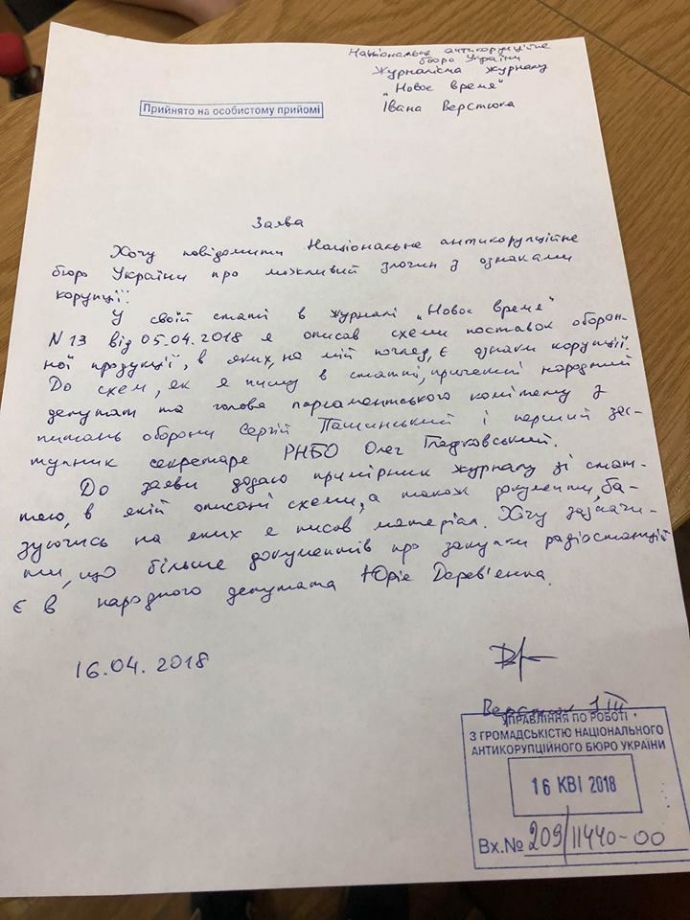 Національне антикорупційне
бюро України
Журналіста журналу
„Новое время"
Івана Верстюка
Прийнято на особистому прийомі
Заява
Хочу повідомити Національне антикорупційне
бюро України про можливий злочин з ознаками
корупції.
У своїй статі в журналі „Новое время"
N 13 від 05.04.2018 я описав схеми поставок оборон-
ної продукції, в яких, на мій погляд, є ознаки корупції.
До схем, як я пишу в статті, причетні народний
депутат та голова парламентського комітету з
питань оборони Сергій Пашинський і перший зас-
тупник секретаря РНБО Олег Гладковський.
До заяви додаю примірник журналу зі стат-
тею, в якій описані схеми, а також документи, ба-
зуючись на яких я писав матеріал. Хочу зазначи-
ти, що більше документів про закупки радіостанцій
є в народного депутата Юрія Дерев'янка.
16.04.2018
Верстюк І.
УПРАВЛІННЯ ПО РОБОТІ
З ГРОМАДСЬКІСТЮ НАЦІОНАЛЬНОГО
АНТИКОРУПЦІЙНОГО БЮРО УКРАЇНИ
16 КВІ 2018
Вх.№ 209/11440-00